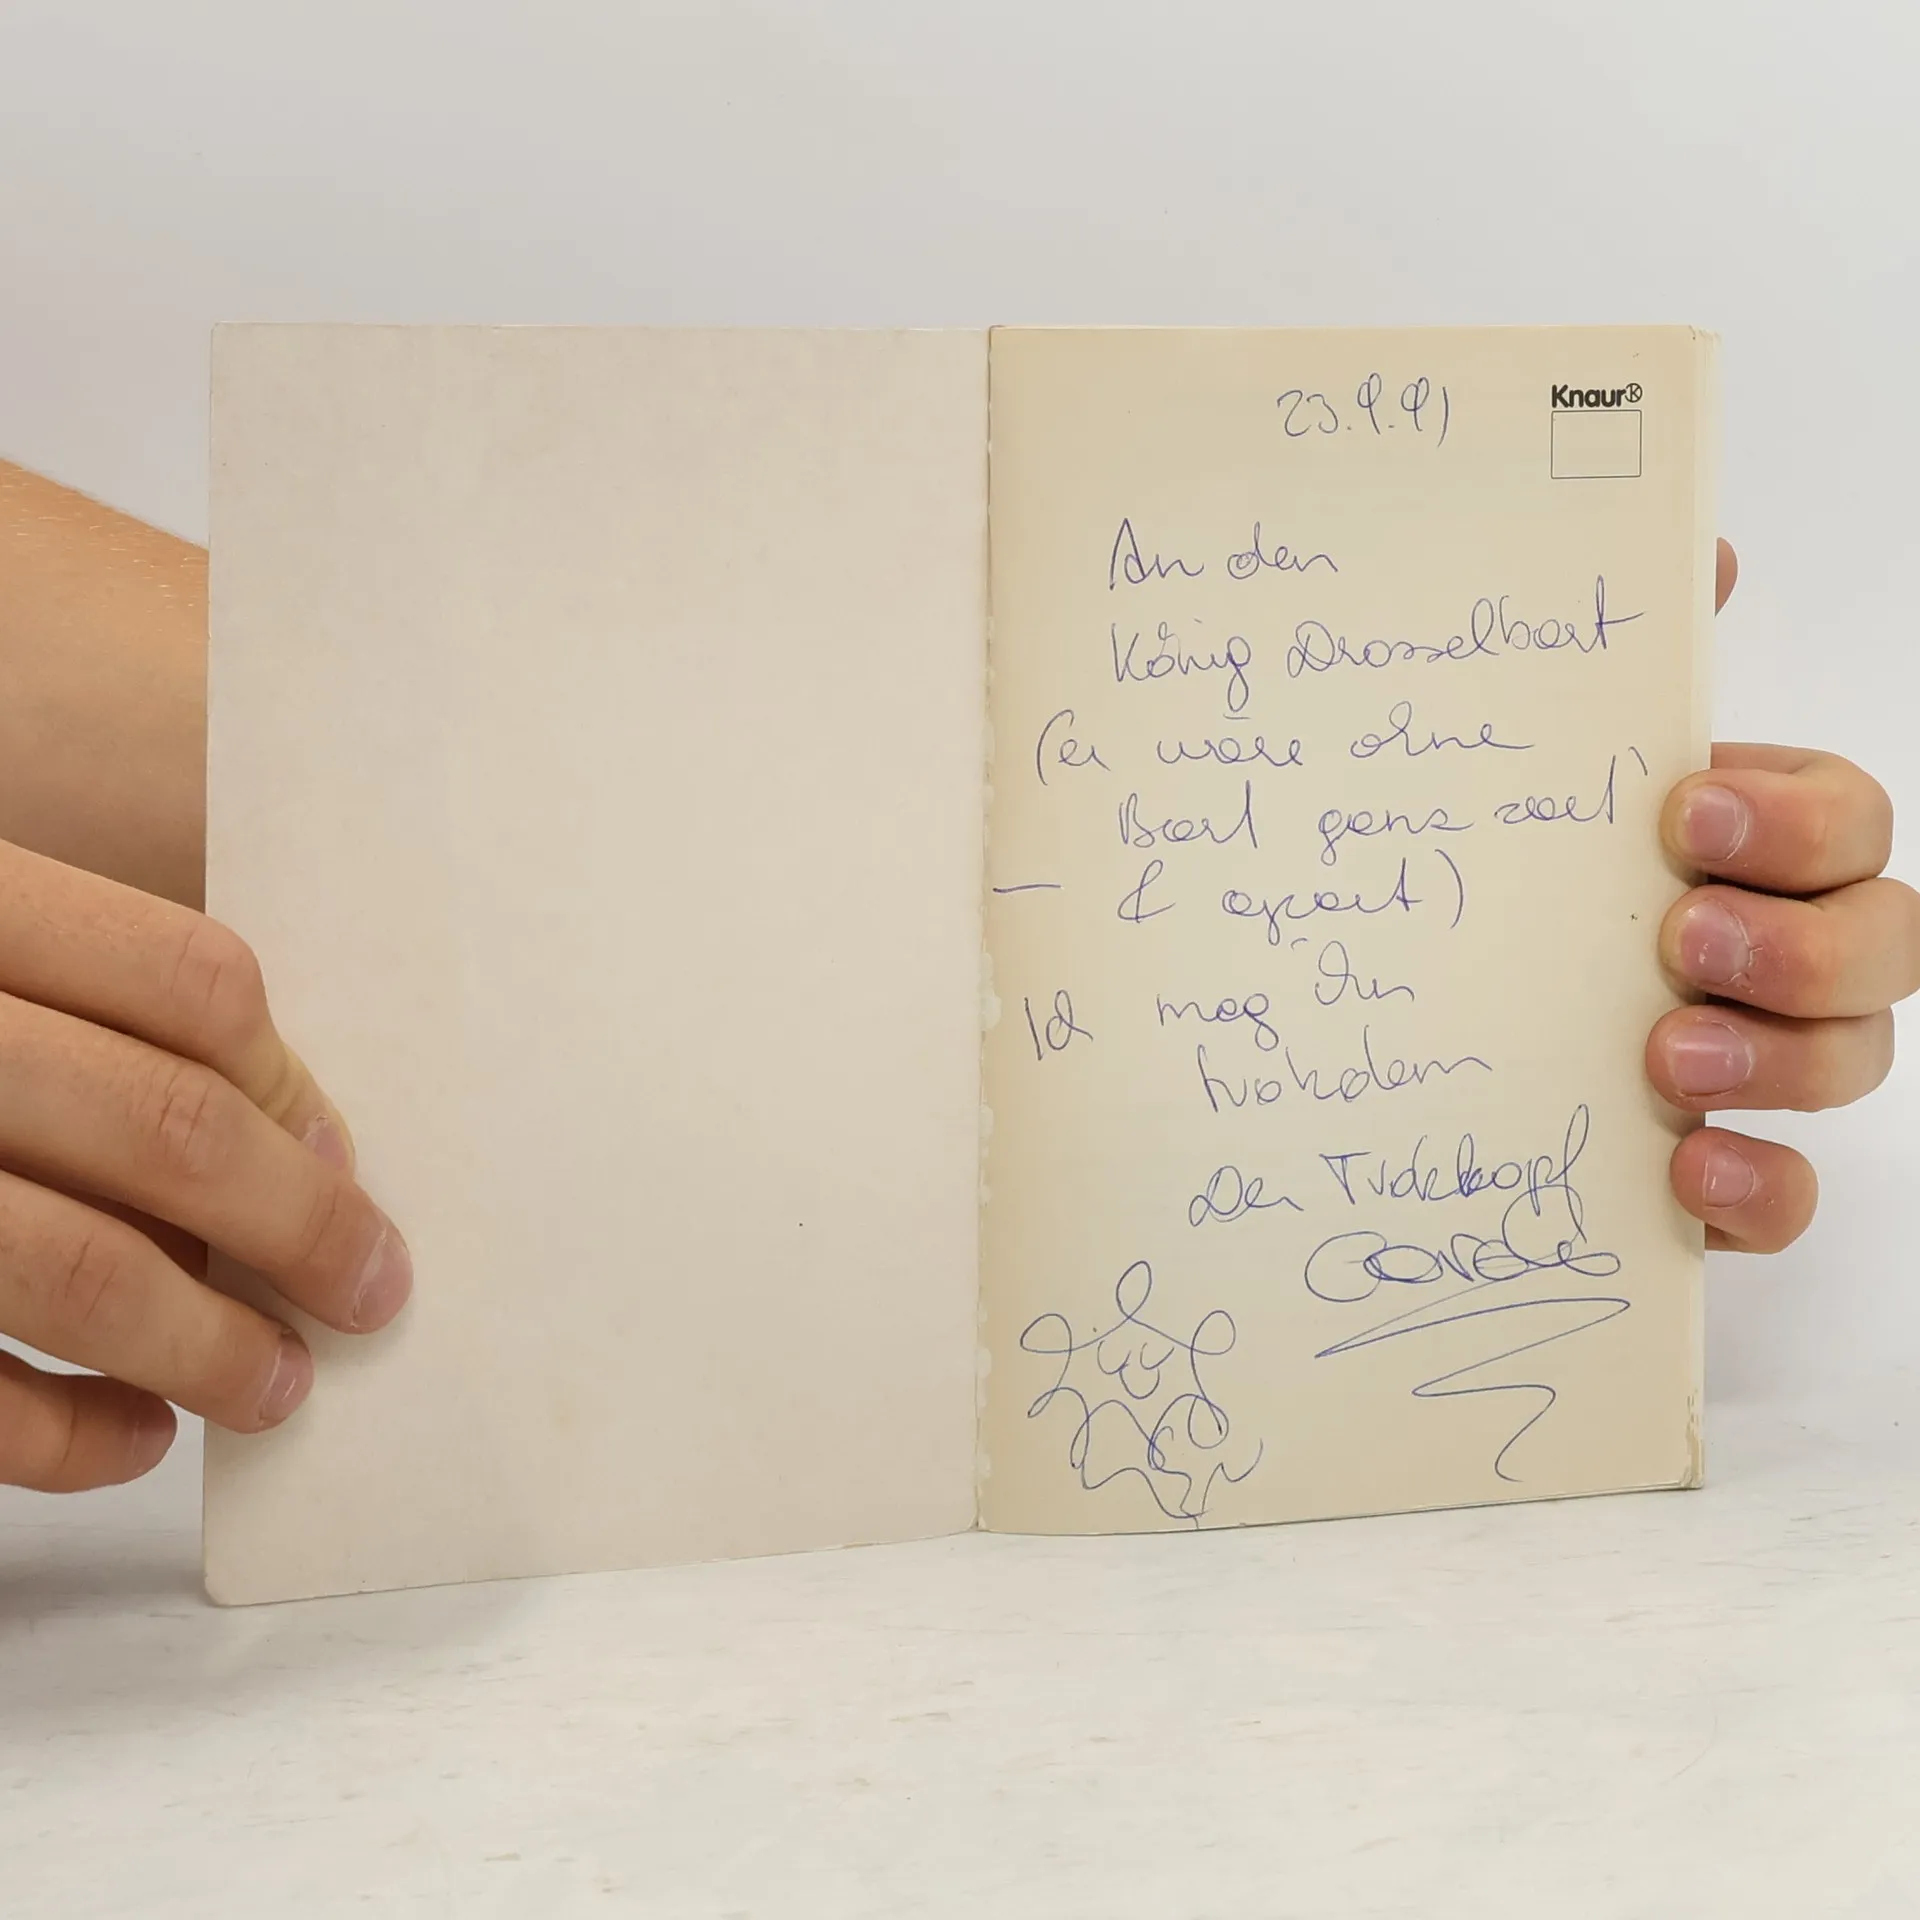 23.9.91
Knaur
An den
König Drosselbart
(er wäre ohne
Bart ganz zart
— & apart)
Ich mag ihn
trotzdem
Der Trotzkopf